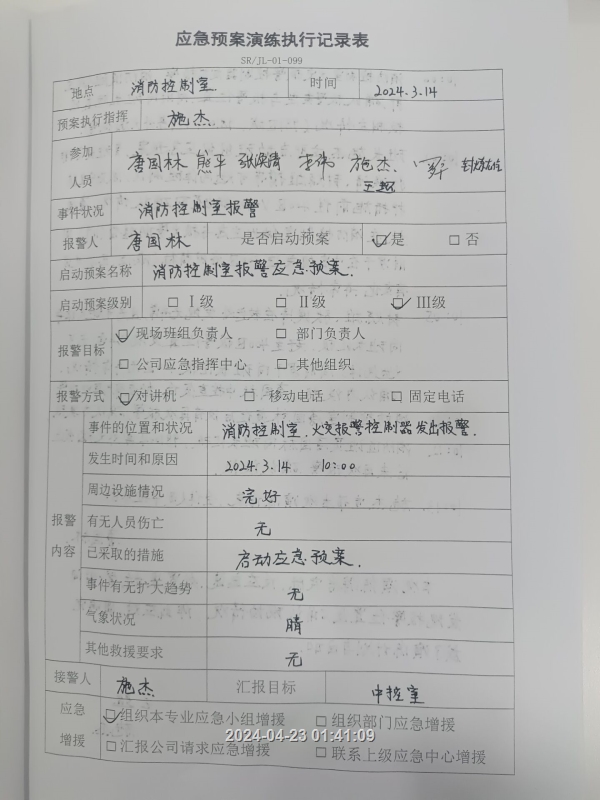 应急预案演练执行记录表
SR/JL-01-099
地点 消防控制室 时间 2024.3.14
预案执行指挥 施杰.
参加人员 唐国林 熊平 施杰.
事件状况 消防控制室报警
报警人 唐国林 是否启动预案 ☑是 □否
启动预案名称 消防控制室报警应急预案.
启动预案级别 □ I级 □ II级 ☑ III级
报警目标 ☑现场班组负责人 □ 部门负责人
□ 公司应急指挥中心 □ 其他组织
报警方式 ☑对讲机 □ 移动电话 □ 固定电话
报警内容
事件的位置和状况 消防控制室.火灾报警控制器发出报警.
发生时间和原因 2024.3.14 10:00
周边设施情况 完好
有无人员伤亡 无
已采取的措施 启动应急预案.
事件有无扩大趋势 无
气象状况 晴
其他救援要求 无
接警人 施杰 汇报目标 中控室
应急增援 ☑组织本专业应急小组增援 □组织部门应急增援
□汇报公司请求应急增援 □联系上级应急中心增援
2024-04-23 01:41:09